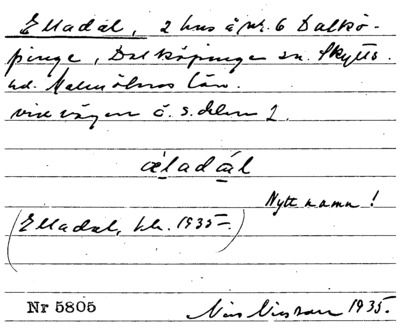 Elladal, 2 hus å nr. 6 Dalkö-
pinge, Dalköpinge sn. Skytts
hd. Malmöhus län.
vid vägen å s. delen
æladál
Nytt namn!
(Elladal, kk. 1935-)
Nr 5805 Nils Nilsson 1935.